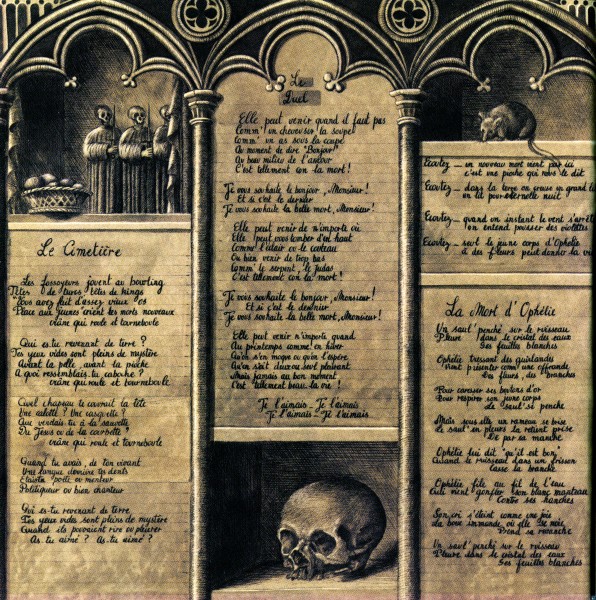 Le Cimetière
Les fossoyeurs jouent au bowling
Têtes de turcs têtes de kings
Vous avez fait d'assez vieux os
Place aux jeunes crient les morts nouveaux
crâne qui roule et tourneboule
Qui es-tu revenant de terre ?
Tes yeux vides sont pleins de mystère
Avant la pelle, avant la pioche
A quoi ressemblais tu caboche ?
crâne qui roule et tourneboule
Quel chapeau te couvrait la tête
Une calotte ? Une casquette ?
Que vendais-tu à la sauvette
Du Jésus ou de la
crâne qui roule et tourneboule
Quand tu avais, de ton vivant
Une langue derrière tes dents
Etais-tu poète ou menteur
Politiqueur ou bien chanteur
Qui es-tu revenant de terre
Tes yeux vides sont pleins de mystère
Quand ils pouvaient rire ou pleurer
As tu aimé ? As-tu aimé ?
Le
Duel
Elle peut venir quand il faut pas
Comm' un cheveu sur la soupe
Comm' un as sous la coupe
Au moment de dire "Bonjour"
Au beau milieu de l'amour
C'est tellement con la mort !
Je vous souhaite le bonjour, Monsieur !
Et si c'est le dernier
Je vous souhaite la belle mort, Monsieur !
Elle peut venir de n'importe où
Elle peut vous tomber d'en haut
Comm' l'éclair ou le couteau
Ou bien venir de trop bas
Comm' le serpent, le Judas
C'est tellement con la mort !
Je vous souhaite le bonjour, Monsieur !
Et si c'est le dernier
Je vous souhaite la belle mort, Monsieur !
Elle peut venir n'importe quand
Au printemps comme en hiver
Qu'on s'en moque ou qu'on l'espère
Qu'on soit deux ou seul
Mais jamais au bon moment
C'est tellement beau la vie !
Je l'aimais - Je l'aimais
Je l'aimais - Je l'aimais
Ecoutez _ un nouveau mort vient par ici
c'est une pioche qui vous le dit
Ecoutez _ dans la terre on creuse un grand lit
un lit pour éternelle nuit
Ecoutez _ quand un instant le vent s'arrête
on entend pousser des violettes
Ecoutez _ seul le jeune corps d'Ophélie
à des fleurs peut donner la vie
La Mort d'Ophélie
Un saul' penché sur le ruisseau
Pleure dans le cristal des eaux
Ses feuilles blanches
Ophélie tressant des guirlandes
Vient présenter comme une offrande
Des fleurs, des branches
Pour caresser ses boutons d'or
Pour respirer son jeune corps
Le saul' se penche
Mais sous elle un rameau se brise
Le saul' en pleurs la retient prise
De par sa manche
Ophélie lui dit "qu'il est bon"
Quand le ruisseau dans un frisson
Casse la branche
Ophélie file au fil de l'eau
Qui vient gonfler son blanc manteau
Contre ses hanches
Son cri s'éteint comme une joie
La boue immonde où elle se noie
Prend sa revanche
Un saul' penché sur le ruisseau
Pleure dans le cristal des eaux
Ses feuilles blanches